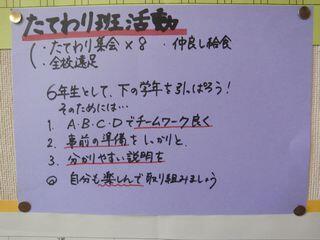 たてわり班活動
(・たてわり集会×8 ・仲良し給食
・全校遠足
6年生として、下の学年を引っぱろう!
そのためには…
1. A・B・C・Dでチームワーク良く
2. 事前の準備をしっかりと
3. 分かりやすい説明を
◎ 自分も楽しんで取り組みましょう